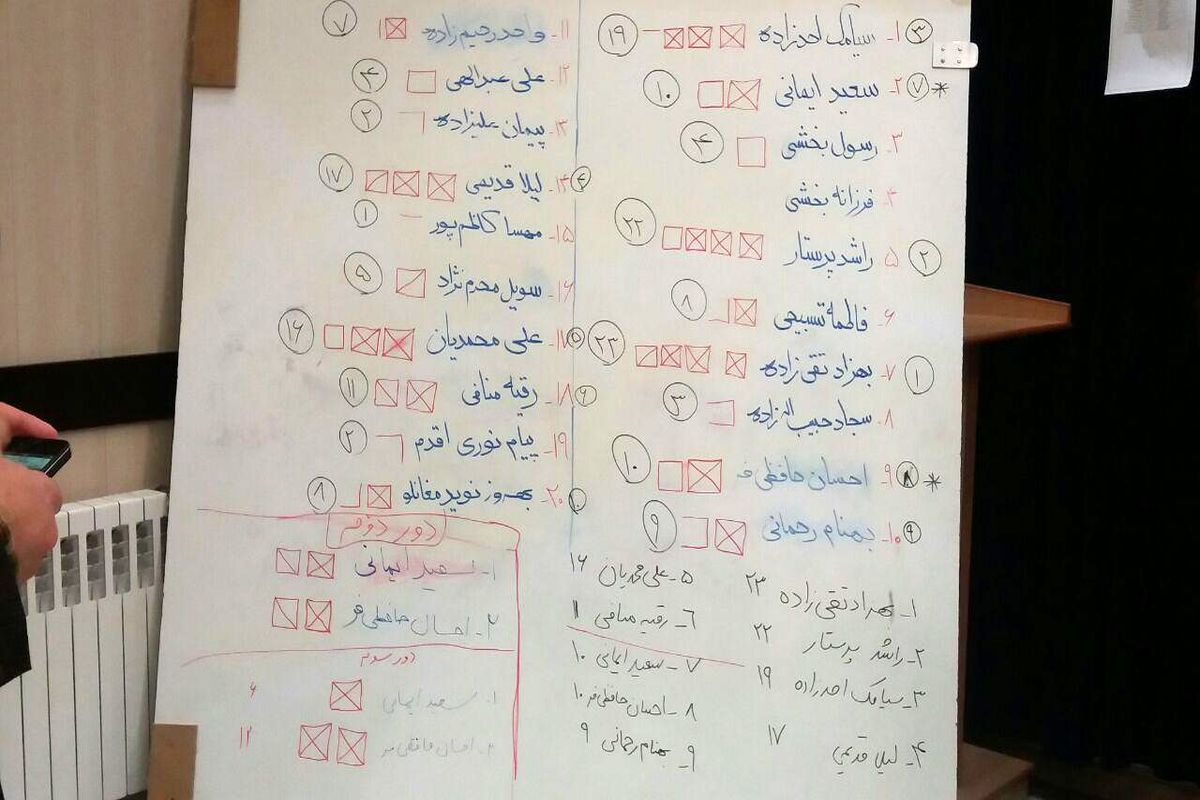 ۳ ۱- سیامک احدزاده ۱۹
* ۷ ۲- سعید ایمانی ۱۰
۳- رسول بخشی ۴
۴- فرزانه بخشی
۲ ۵- راشد پرستار ۲۲
۶- فاطمه تسبیحی ۸
۱ ۷- بهزاد تقی زاده ۲۳
۸- سجاد حبیب اله زاده ۳
* ۸ ۹- احسان حافظی فر ۱۰
۹ ۱۰- بهنام رحمانی ۹
۱۱- واحد رحیم زاده ۷
۱۲- علی عبدالهی ۴
۱۳- پیمان علیزاده ۲
۴ ۱۴- لیلا قدیمی ۱۷
۱۵- مهسا کاظم پور ۱
۱۶- سویل محرم نژاد ۵
۵ ۱۷- علی محمدیان ۱۶
۶ ۱۸- رقیه منافی ۱۱
۱۹- پیام نوری اقدم ۲
۱۰ ۲۰- بهروز نوید مغانلو ۸
۱- بهزاد تقی زاده ۲۳
۲- راشد پرستار ۲۲
۳- سیامک احدزاده ۱۹
۴- لیلا قدیمی ۱۷
۵- علی محمدیان ۱۶
۶- رقیه منافی ۱۱
۷- سعید ایمانی ۱۰
۸- احسان حافظی فر ۱۰
۹- بهنام رحمانی ۹
دور دوم
۱- سعید ایمانی
۲- احسان حافظی فر
دور سوم
۱- سعید ایمانی ۶
۲- احسان حافظی فر ۱۲